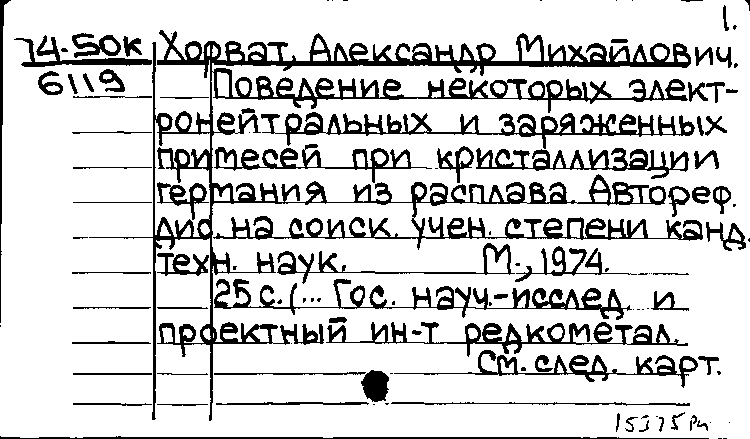 1.
74-50К Хорват, Александр Михайлович.
6119 Поведение некоторых элект-
ронейтральных и заряженных
примесей при кристаллизации
германия из расплава. Автореф.
дис. на соиск. учен. степени канд.
техн. наук. М., 1974.
25 с. (... Гос. науч.-исслед. и
проектный ин-т редкометал.
См. след. карт.